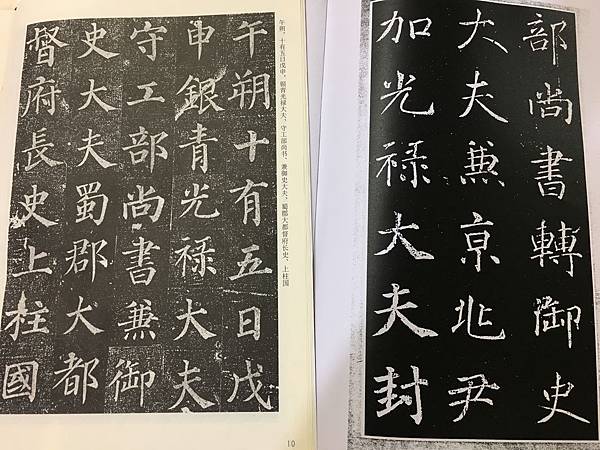 午朔,十有五日戊申,银青光禄大夫、守工部尚书、兼御史大夫、蜀郡大都督府长史、上柱国
午朔十有五日戊
申銀青光禄大夫
守工部尚書兼御
史大夫蜀郡大都
督府長史上柱國
10
部尚書轉御史
大夫兼京兆尹
加光禄大夫封